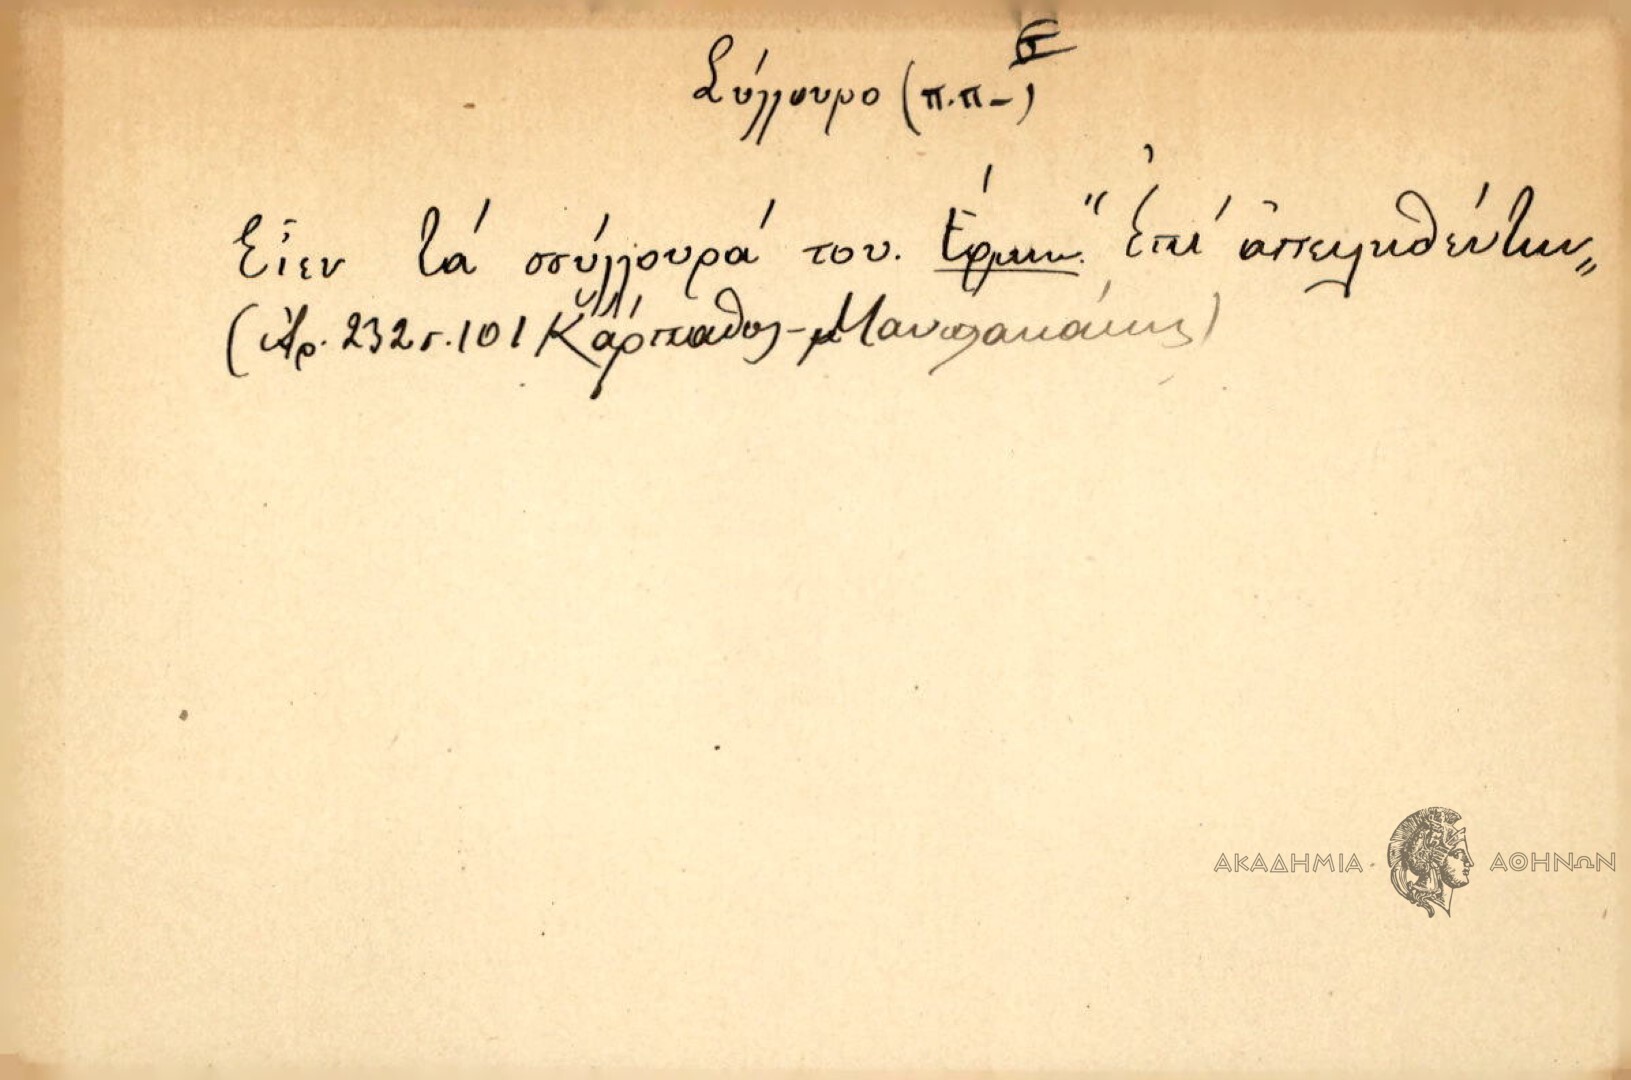 Σύγγουρο (π.π-)
Εἶεν τά σύγγουρά του. Ἑρμην. "Ἐπί ἀπειληθέντων"
(Ἀρ. 232 σ. 101 Κάρπαθος - Μανωλακάκης)
ΑΚΑΔΗΜΙΑ ΑΘΗΝΩΝ